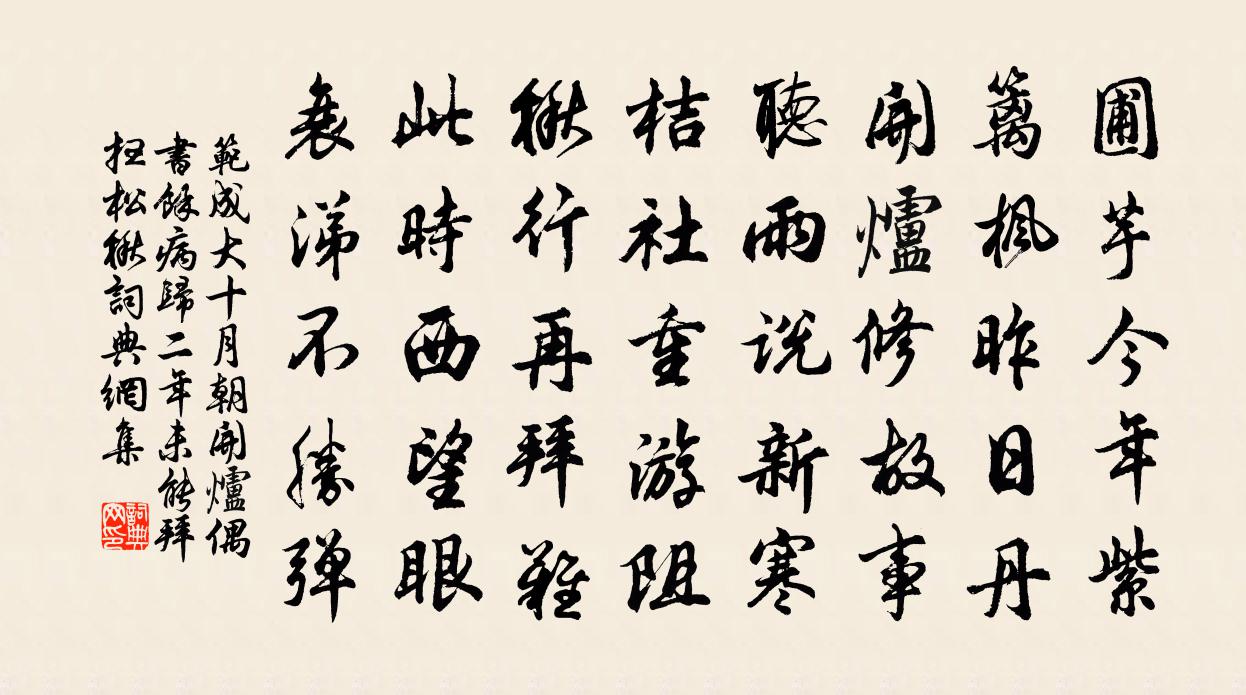 圃芋今年紫
篱楓昨日丹
開爐修故事
聽雨說新寒
桔社重游阻
楸行再拜難
此時西望眼
衰涕不勝彈
範成大十月朝開爐偶
書餘病歸二年未能拜
扭松楸詞典網集
詞典
网印